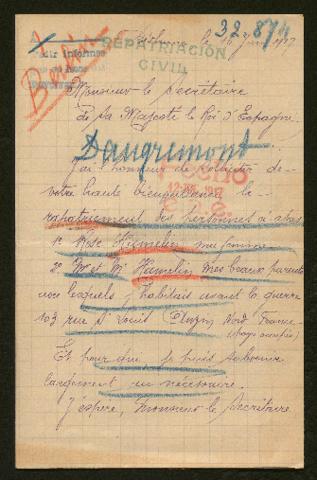 32.874
REPATRIACIÓN
CIVIL
Berlin
Monsieur le Secrétaire
de Sa Majesté le Roi d'Espagne
Daugremont
J'ai l'honneur de solliciter de
votre haute bienveillance le
rapatriement des personnes
1º Rose Hamelin ma
2º Mr et Me Hamelin mes beaux parents
avec lesquels j'habitais avant la guerre
103 rue St Louis Nord France
(pays occupée)
Et pour qui je puis subvenir
largement au nécessaire.
J'espère, Monsieur le Secrétaire